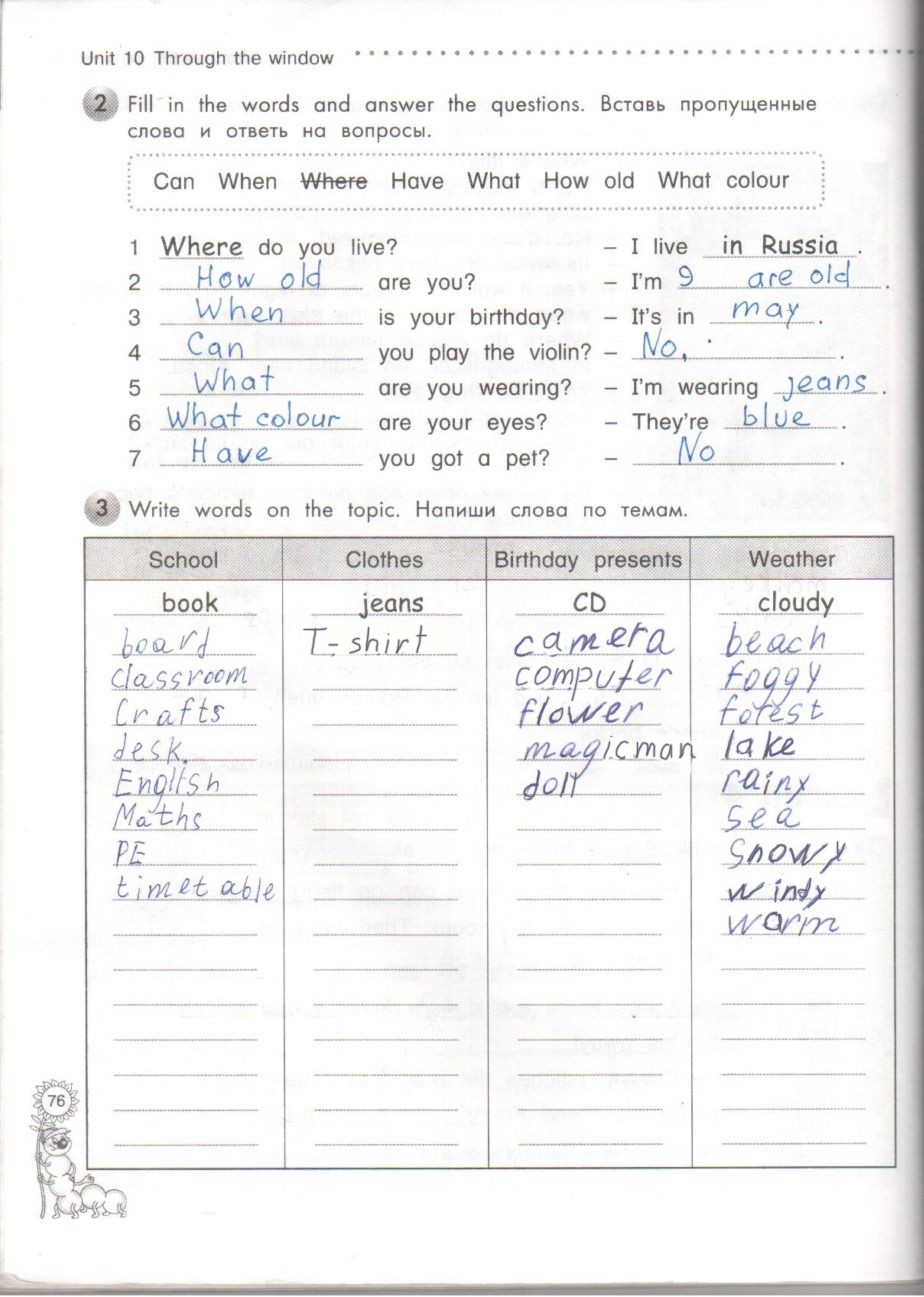 Unit 10 Through the window
2 Fill in the words and answer the questions. Вставь пропущенные
слова и ответь на вопросы.
Can When Where Have What How old What colour
1 Where do you live? – I live in Russia.
2 How old are you? – I'm 9 are old.
3 When is your birthday? – It's in may.
4 Can you play the violin? – No, .
5 What are you wearing? – I'm wearing jeans.
6 What colour are your eyes? – They're blue.
7 Have you got a pet? – No.
3 Write words on the topic. Напиши слова по темам.
School Clothes Birthday presents Weather
book jeans CD cloudy
board T-shirt camera beach
classroom computer foggy
Crafts flower forest
desk. magicman lake
English doll rainy
Maths sea
PE snowy
timetable windy
warm
76